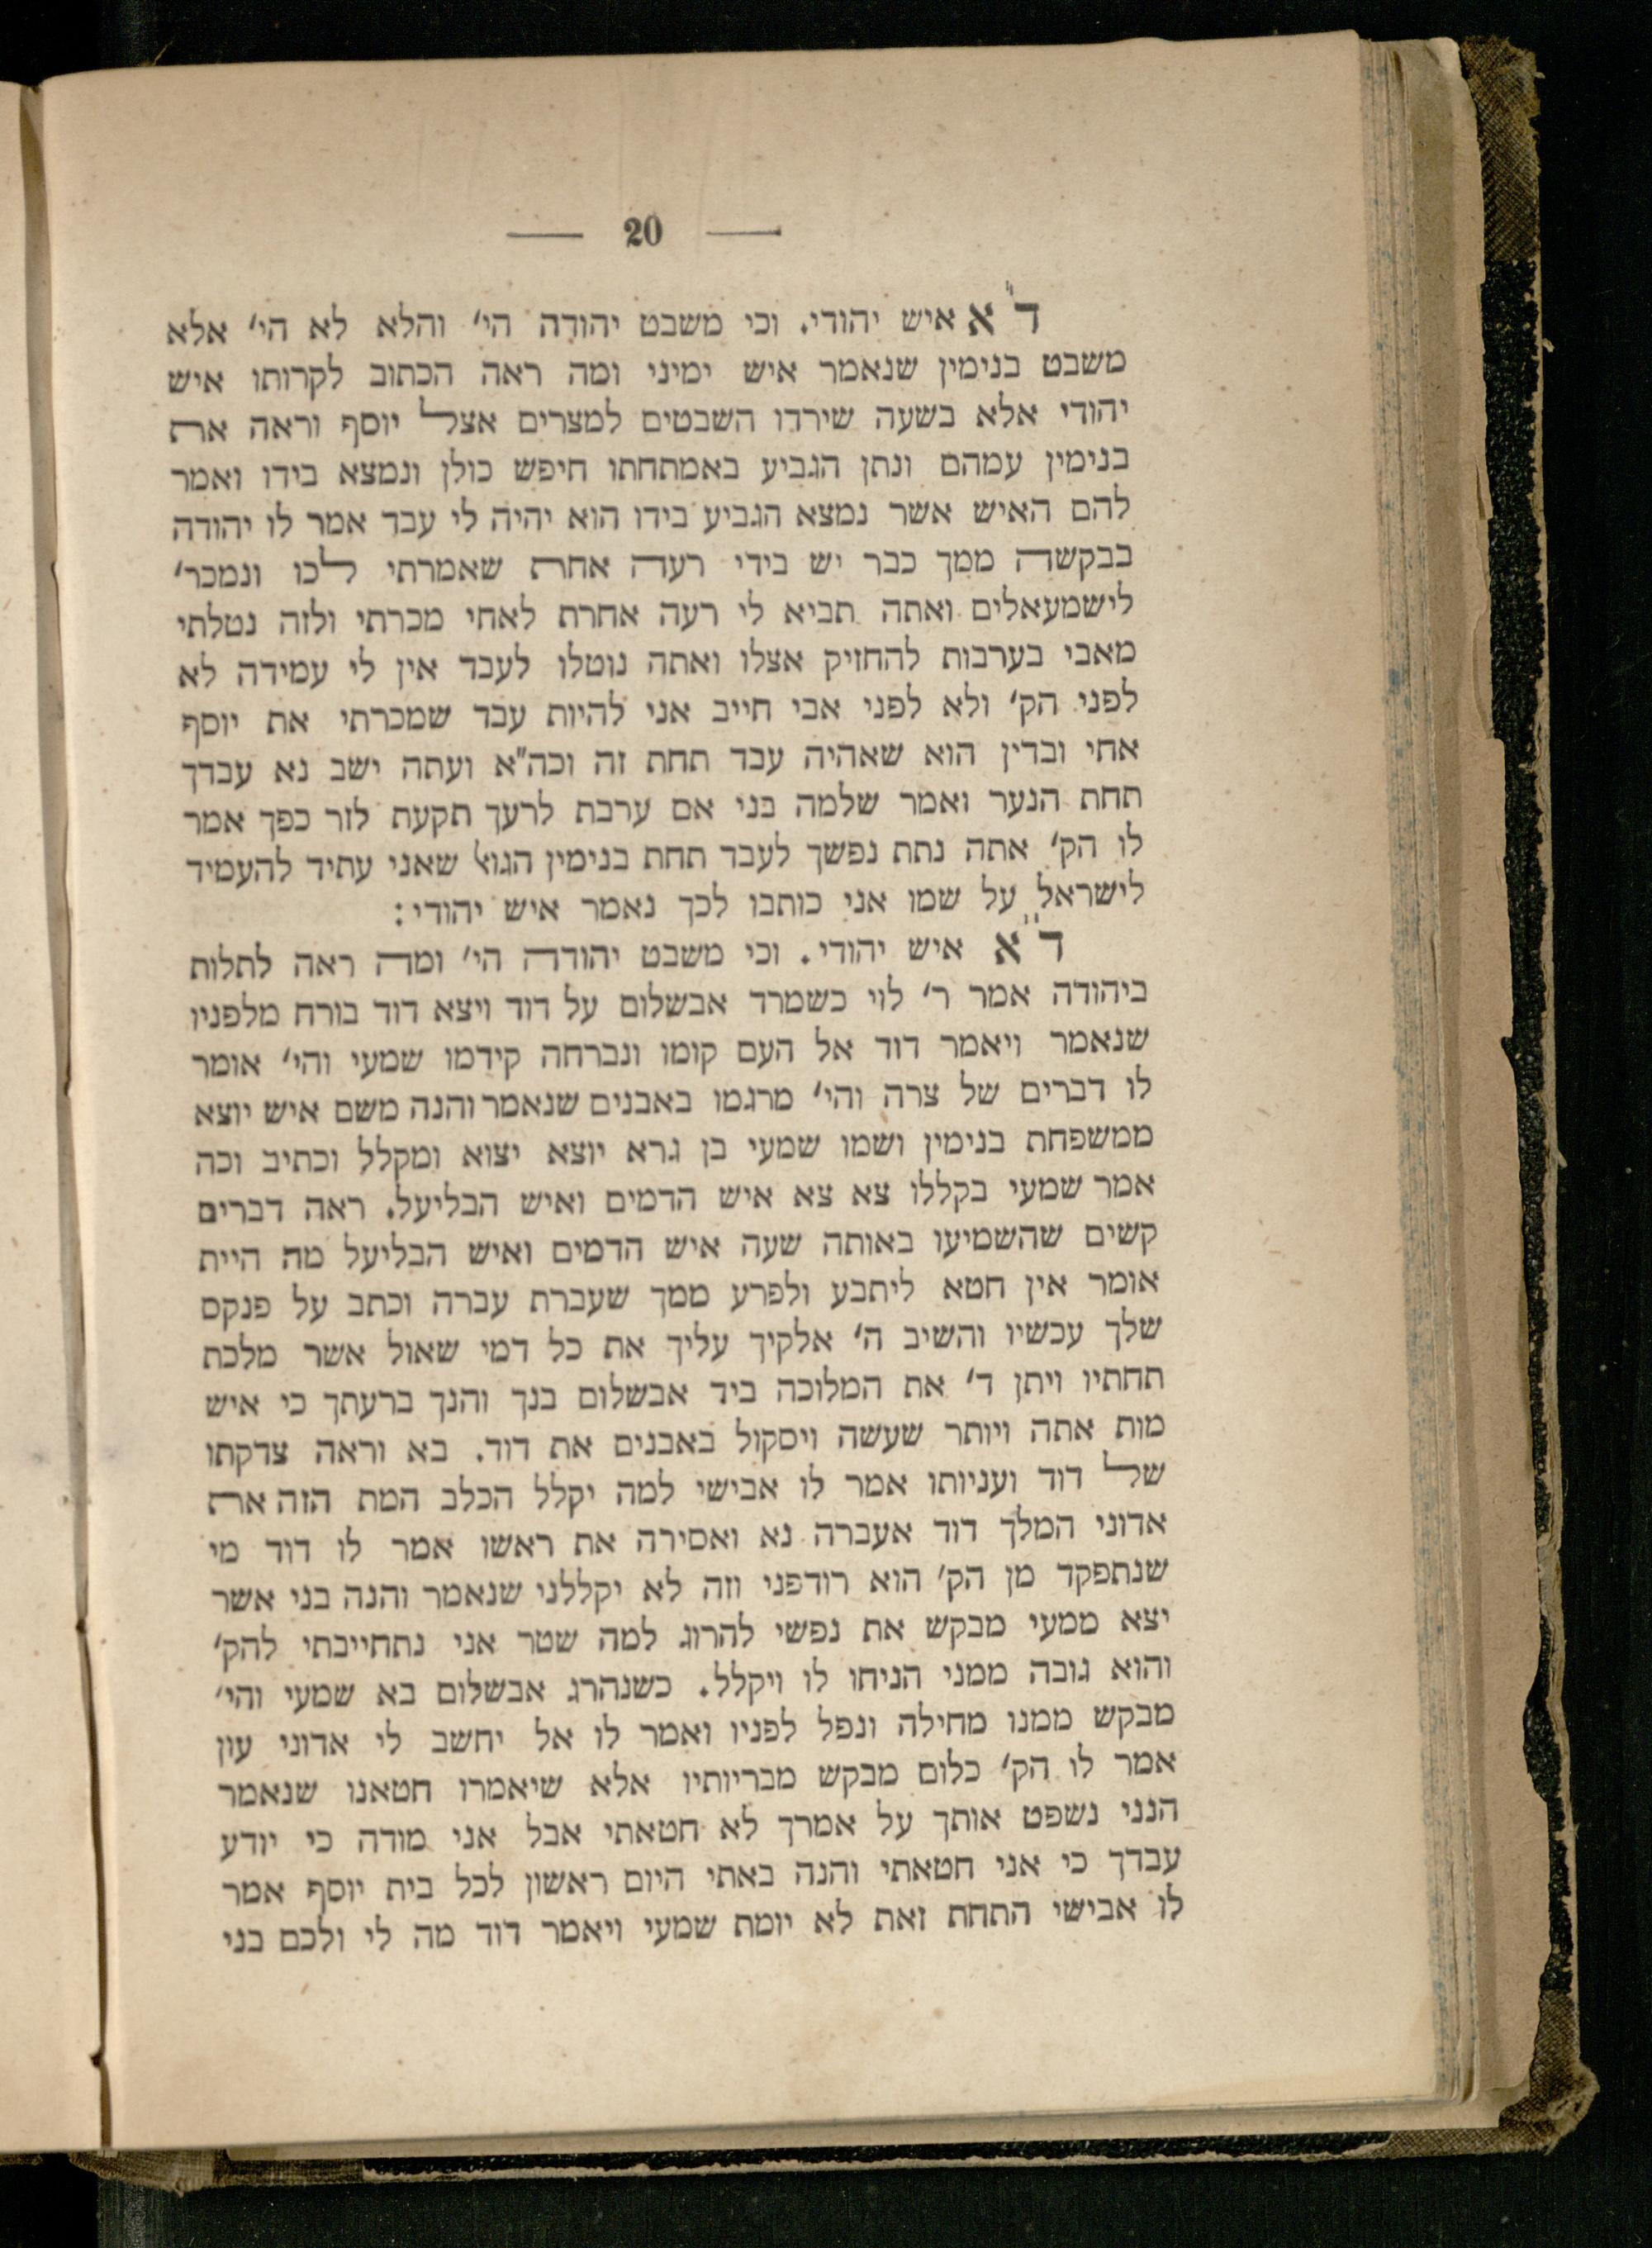 — 20 —
ד"א איש יהודי. וכי משבט יהודה הי' והלא לא הי' אלא
משבט בנימין שנאמר איש ימיני ומה ראה הכתוב לקרותו איש
יהודי אלא בשעה שירדו השבטים למצרים אצל יוסף וראה את
בנימין עמהם ונתן הגביע באמתחתו חיפש כולן ונמצא בידו ואמר
להם האיש אשר נמצא הגביע בידו הוא יהיה לי עבד אמר לו יהודה
בבקשה ממך כבר יש בידי רעה אחת שאמרתי לכו ונמכר'
לישמעאלים ואתה תביא לי רעה אחרת לאחי מכרתי ולזה נטלתי
מאבי בערבות להחזיק אצלו ואתה נוטלו לעבד אין לי עמידה לא
לפני הק' ולא לפני אבי חייב אני להיות עבד שמכרתי את יוסף
אחי ובדין הוא שאהיה עבד תחת זה וכה"א ועתה ישב נא עבדך
תחת הנער ואמר שלמה בני אם ערבת לרעך תקעת לזר כפך אמר
לו הק' אתה נתת נפשך לעבד תחת בנימין הגוא שאני עתיד להעמיד
לישראל על שמו אני כותבו לכך נאמר איש יהודי:
ד"א איש יהודי. וכי משבט יהודה הי' ומה ראה לתלות
ביהודה אמר ר' לוי כשמרד אבשלום על דוד ויצא דוד בורח מלפניו
שנאמר ויאמר דוד אל העם קומו ונברחה קידמו שמעי והי' אומר
לו דברים של צרה והי' מרגמו באבנים שנאמר והנה משם איש יוצא
ממשפחת בנימין ושמו שמעי בן גרא יוצא יצוא ומקלל וכתיב וכה
אמר שמעי בקללו צא צא איש הדמים ואיש הבליעל. ראה דברים
קשים שהשמיעו באותה שעה איש הדמים ואיש הבליעל מה היית
אומר אין חטא ליתבע ולפרע ממך שעברת עברה וכתב על פנקס
שלך עכשיו והשיב ה' אלקיך עליך את כל דמי שאול אשר מלכת
תחתיו ויתן ד' את המלוכה ביד אבשלום בנך והנך ברעתך כי איש
מות אתה ויותר שעשה ויסקול באבנים את דוד. בא וראה צדקתו
של דוד ועניותו אמר לו אבישי למה יקלל הכלב המת הזה את
אדוני המלך דוד אעברה נא ואסירה את ראשו אמר לו דוד מי
שנתפקד מן הק' הוא רודפני וזה לא יקללני שנאמר והנה בני אשר
יצא ממעי מבקש את נפשי להרוג למה שטר אני נתחייבתי להק'
והוא גובה ממני הניחו לו ויקלל. כשנהרג אבשלום בא שמעי והי'
מבקש ממנו מחילה ונפל לפניו ואמר לו אל יחשב לי אדוני עון
אמר לו הק' כלום מבקש מבריותיו אלא שיאמרו חטאנו שנאמר
הנני נשפט אותך על אמרך לא חטאתי אבל אני מודה כי יודע
עבדך כי אני חטאתי והנה באתי היום ראשון לכל בית יוסף אמר
לו אבישי התחת זאת לא יומת שמעי ויאמר דוד מה לי ולכם בני